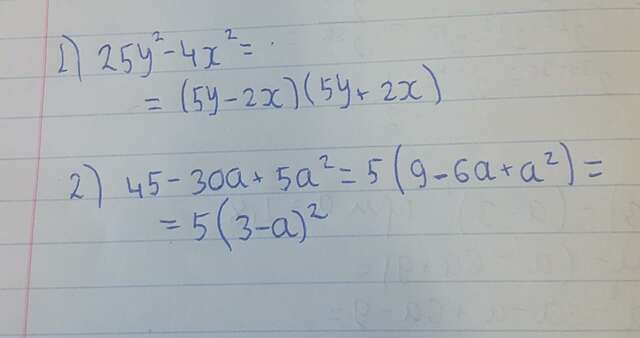 1) 25y² - 4x² =
= (5y - 2x)(5y + 2x)
2) 45 - 30a + 5a² = 5(9 - 6a + a²) =
= 5(3 - a)²